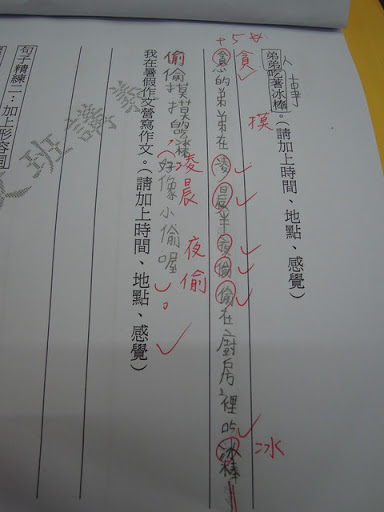 人 事
弟弟吃著冰棒。(請加上時間、地點、感覺)
+5
貪 摸
冰
貪的弟弟在凌晨半夜偷偷在廚房裡吃冰棒
凌晨 夜偷
偷偷摸摸的 好像小偷喔。
我在暑假作文營寫作文。(請加上時間、地點、感覺)
班講義
句子精練二:加上形容詞